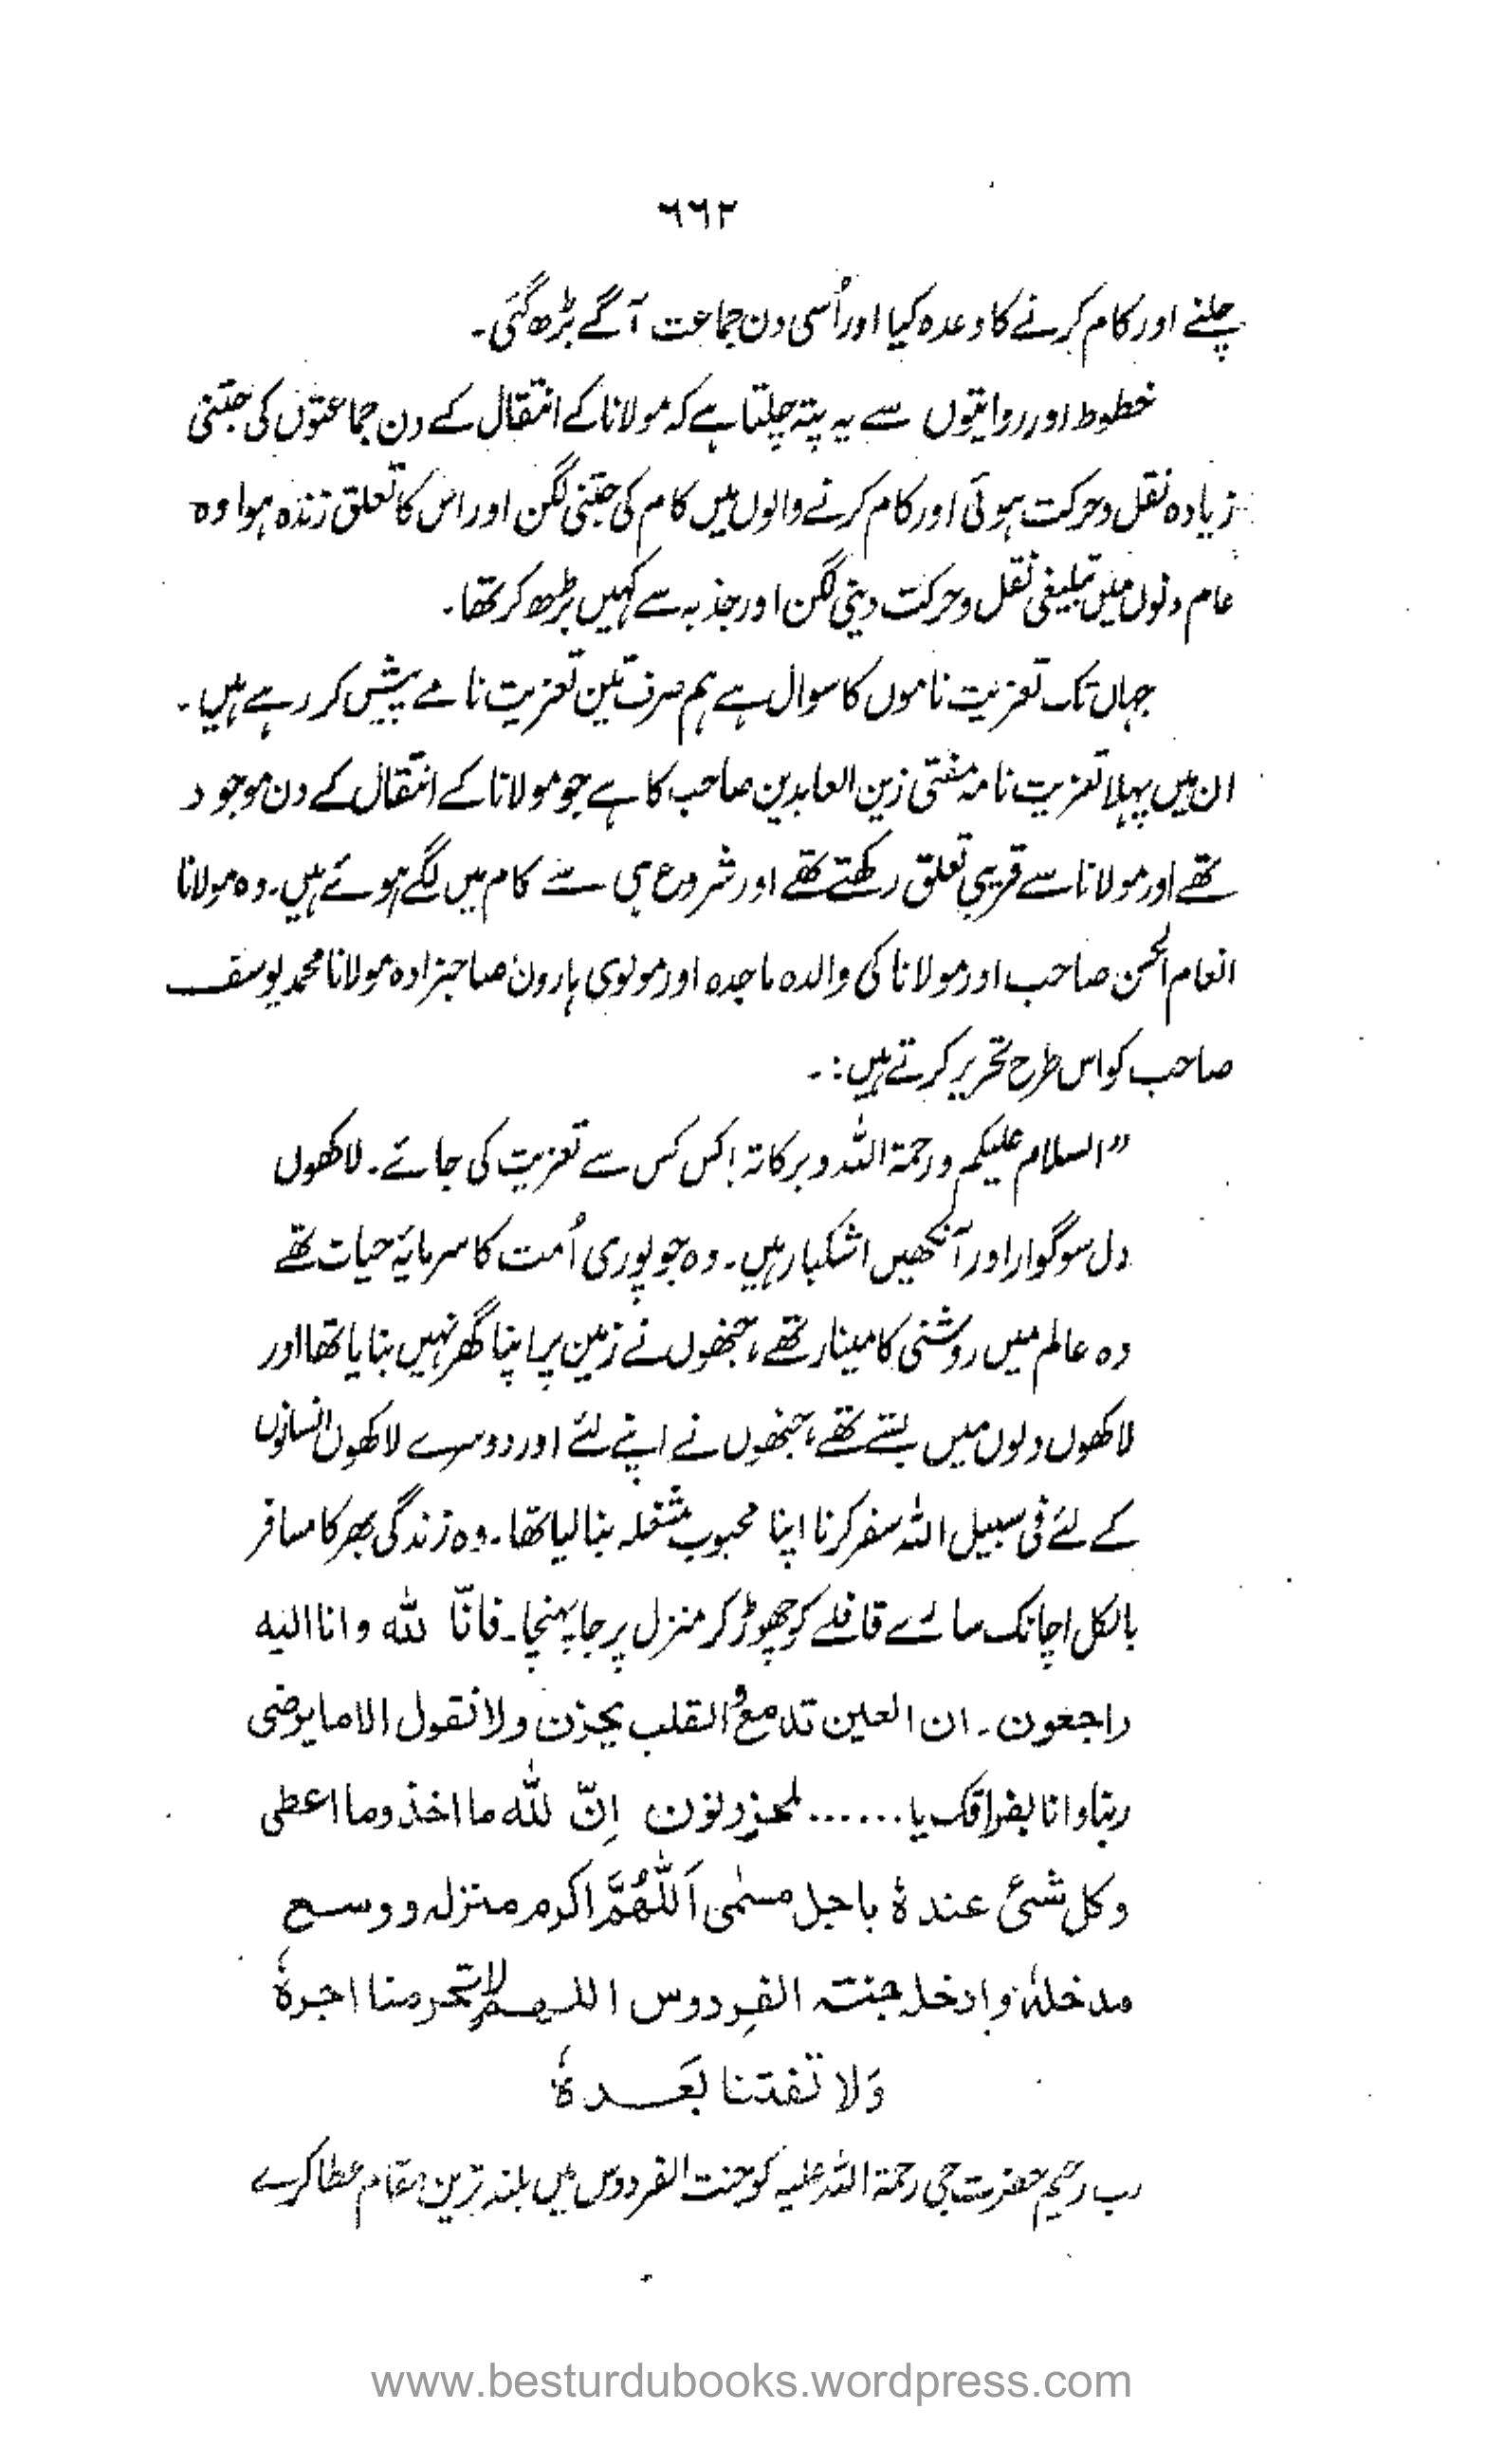 ۶۶۲
چلنے اور کام کرنے کا وعدہ کیا اور اُسی دن جماعت آگے بڑھ گئی۔
خطوط اور روایتوں سے یہ پتہ چلتا ہے کہ مولانا کے انتقال کے دن جماعتوں کی جتنی
زیادہ نقل و حرکت ہوئی اور کام کرنے والوں میں کام کی جتنی لگن اور اس کا تعلق زندہ ہوا وہ
عام دنوں میں تبلیغی نقل و حرکت دینی لگن اور جذبہ سے کہیں بڑھ کر تھا۔
جہاں تک تعزیت ناموں کا سوال ہے ہم صرف تین تعزیت نامے پیش کر رہے ہیں۔
ان میں پہلا تعزیت نامہ مفتی زین العابدین صاحب کا ہے جو مولانا کے انتقال کے دن موجود
تھے اور مولانا سے قریبی تعلق رکھتے تھے اور شروع ہی سے کام میں لگے ہوئے ہیں۔ وہ مولانا
انعام الحسن صاحب اور مولانا کی والدہ ماجدہ اور مولوی ہارون صاحبزادہ مولانا محمد یوسف
صاحب کو اس طرح تحریر کرتے ہیں:۔
"السلام علیکم ورحمۃ اللہ وبرکاتہ! کس کس سے تعزیت کی جائے۔ لاکھوں
دل سوگوار اور آنکھیں اشکبار ہیں۔ وہ جو پوری اُمت کا سرمایۂ حیات تھے
وہ عالم میں روشنی کا مینار تھے، جنھوں نے زمین پر اپنا گھر نہیں بنایا تھا اور
لاکھوں دلوں میں بستے تھے، جنھوں نے اپنے لئے اور دوسرے لاکھوں انسانوں
کے لئے فی سبیل اللہ سفر کرنا اپنا محبوب مشغلہ بنا لیا تھا۔ وہ زندگی بھر کا مسافر
بالکل اچانک سارے قافلے کو چھوڑ کر منزل پر جا پہنچا۔ فانّا للہ وانا الیہ
راجعون۔ ان العین تدمع والقلب یحزن ولا نقول الا ما یرضی
ربنا وانا بفراقک یا...... لمحزونون اِنّ للہ ما اخذ وما اعطی
وکل شیٔ عندہٗ باجل مسمٰی اَللّٰھُمَّ اکرم منزلہ ووسع
مدخلہٗ وادخلہ جنتہ الفردوس اللھم لا تحرمنا اجرہٗ
وَلا تفتنا بَعدہٗ
رب رحیم حضرت جی رحمۃ اللہ علیہ کو جنت الفردوس میں بلند ترین مقام عطا کرے
www.besturdubooks.wordpress.com